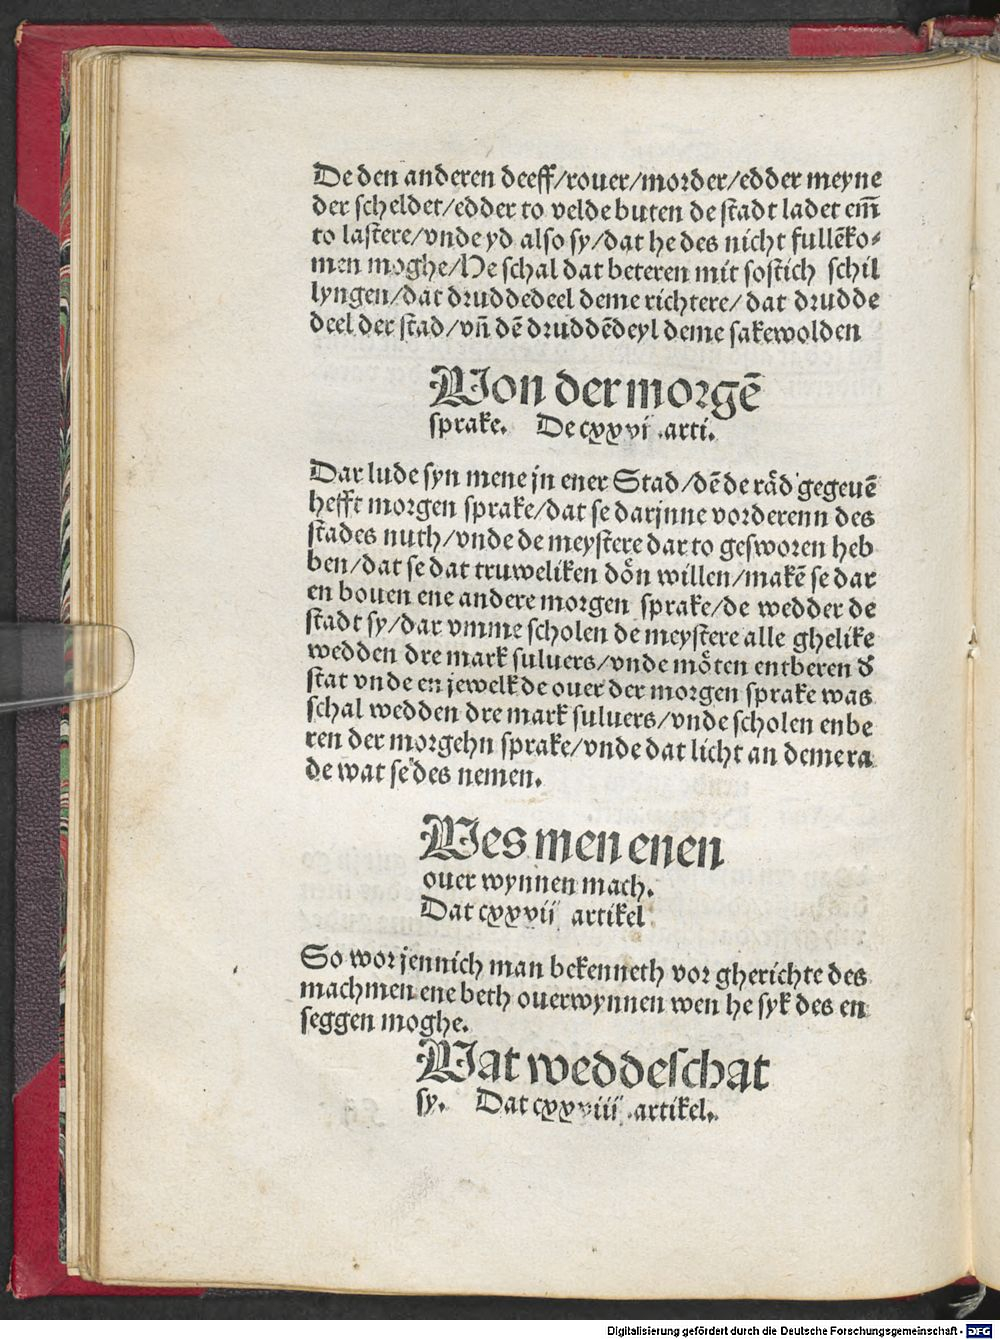 De den anderen deeff/rouer/morder/edder meyne
der scheldet/edder to velde buten de stadt ladet em̄
to lastere/vnde yd also sy/dat he des nicht fullēko⸗
men moghe/He schal dat beteren mit sostich schil
lyngen/dat druddedeel deme richtere/ dat drudde
deel der stad/vn̄ dē druddēdeyl deme sakewolden
Von der morgē
sprake. De cxxvi .arti.
Dar lude syn mene jn ener Stad/dē de råd gegeuē
hefft morgen sprake/dat se darjnne vorderenn des
stades nuth/vnde de meystere dar to gesworen heb
ben/dat se dat truweliken dön willen/makē se dar
en bouen ene andere morgen sprake/de wedder de
stadt sy/dar vmme scholen de meystere alle ghelike
wedden dre mark suluers/vnde möten entberen d̄
stat vnde en jewelk de ouer der morgen sprake was
schal wedden dre mark suluers/vnde scholen enbe
ren der morgehn sprake/vnde dat licht an deme ra
de wat se des nemen.
Wes men enen
ouer wynnen mach.
Dat cxxvii artikel
So wor jennich man bekenneth vor gherichte des
mach men ene beth ouerwynnen wen he syk des en
seggen moghe.
Wat weddeschat
sy. Dat cxxviii .artikel.
Digitalisierung gefördert durch die Deutsche Forschungsgemeinschaft - DFG